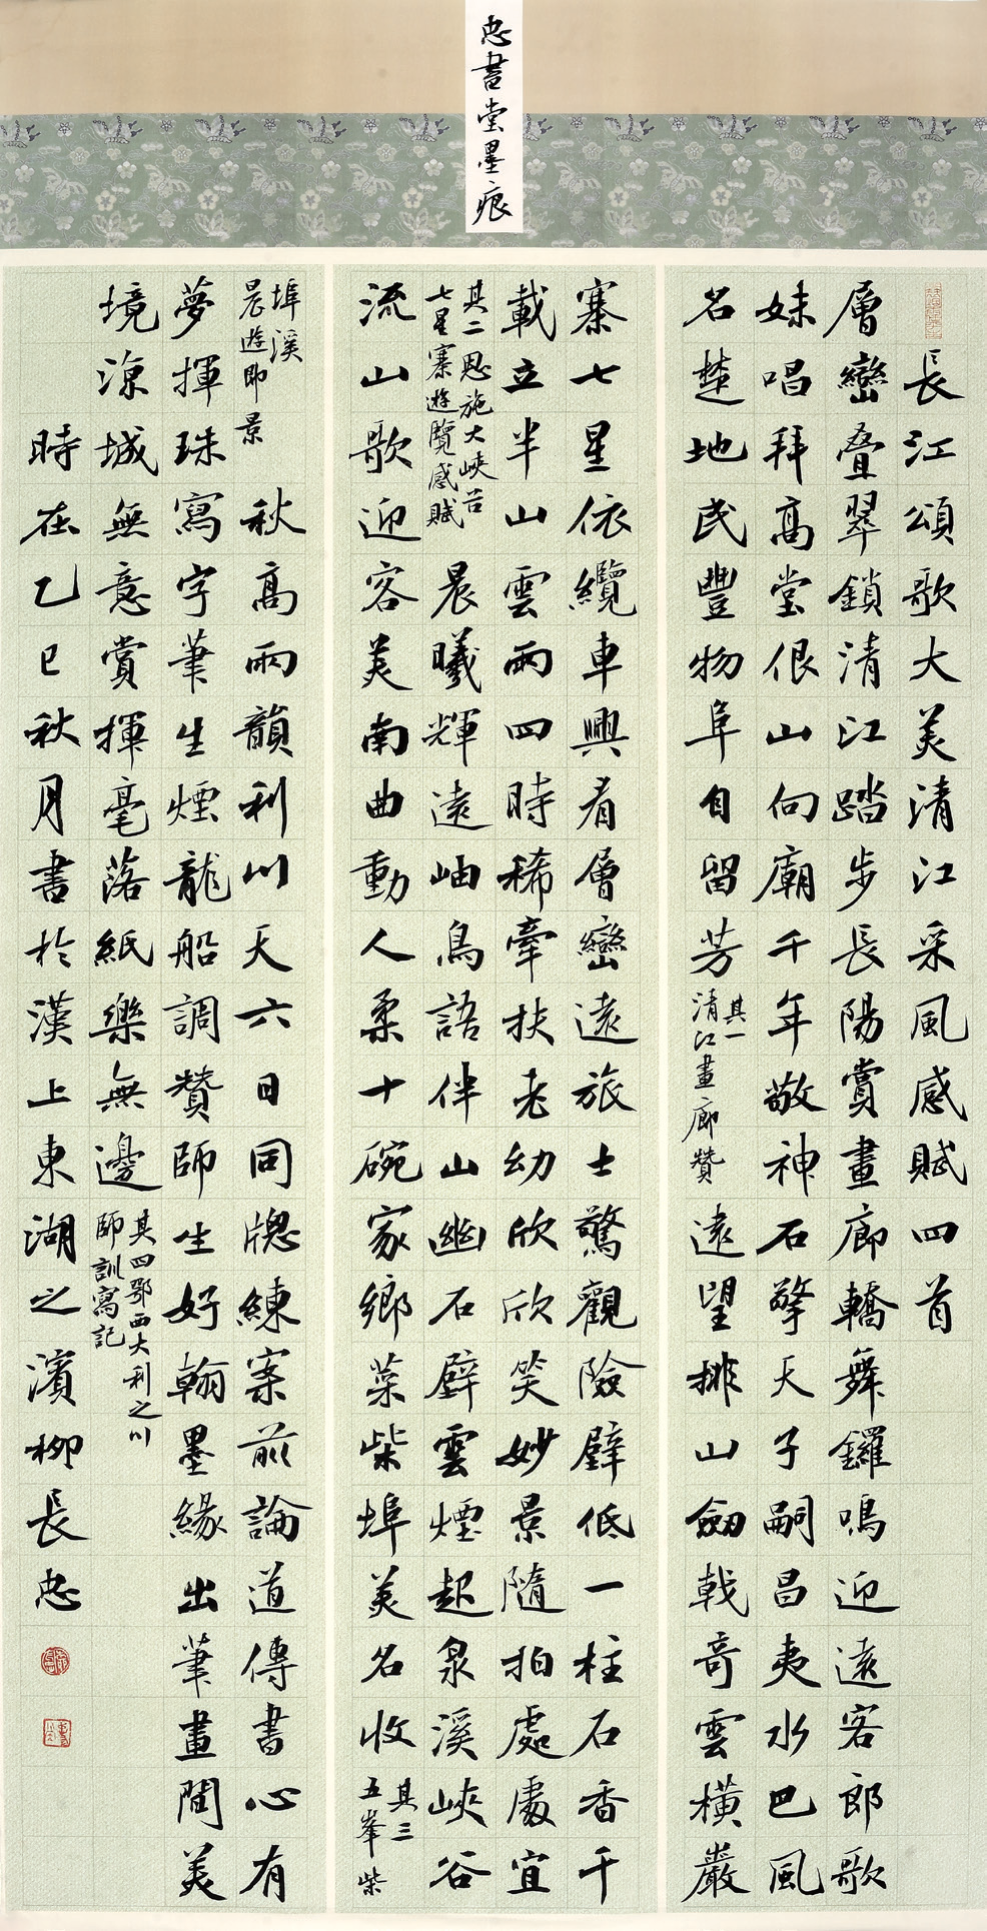 忠書堂墨痕
長江頌歌大美清江采風感賦四首
層巒叠翠鎖清江踏步長陽賞畫廊轎舞鑼鳴迎遠客郎歌
妹唱拜高堂佷山向廟千年敬神石擎天子嗣昌夷水巴風
名楚地民豐物阜自留芳
其一
清江畫廊贊
遠望排山劍戟奇雲橫巖
寨七星依纜車興看層巒遠旅士驚觀險壁低一柱石香千
載立半山雲雨四時稀牽扶老幼欣欣笑妙景隨拍處處宜
其二恩施大峽谷
七星寨遊覽感賦
晨曦輝遠岫鳥語伴山幽石壁雲煙起泉溪峽谷
流山歌迎容美南曲動人柔十碗家鄉菜柴埠美名收
其三
五峯柴
埠溪
晨遊即景
秋高雨韻利川天六日同牕練案前論道傳書心有
夢揮珠寫字筆生煙龍船調贊師生好翰墨緣出筆畫間美
境涼城無意賞揮毫落紙樂無邊
其四鄂西大利之川
師訓寫記
時在乙巳秋月書於漢上東湖之濱柳長忠